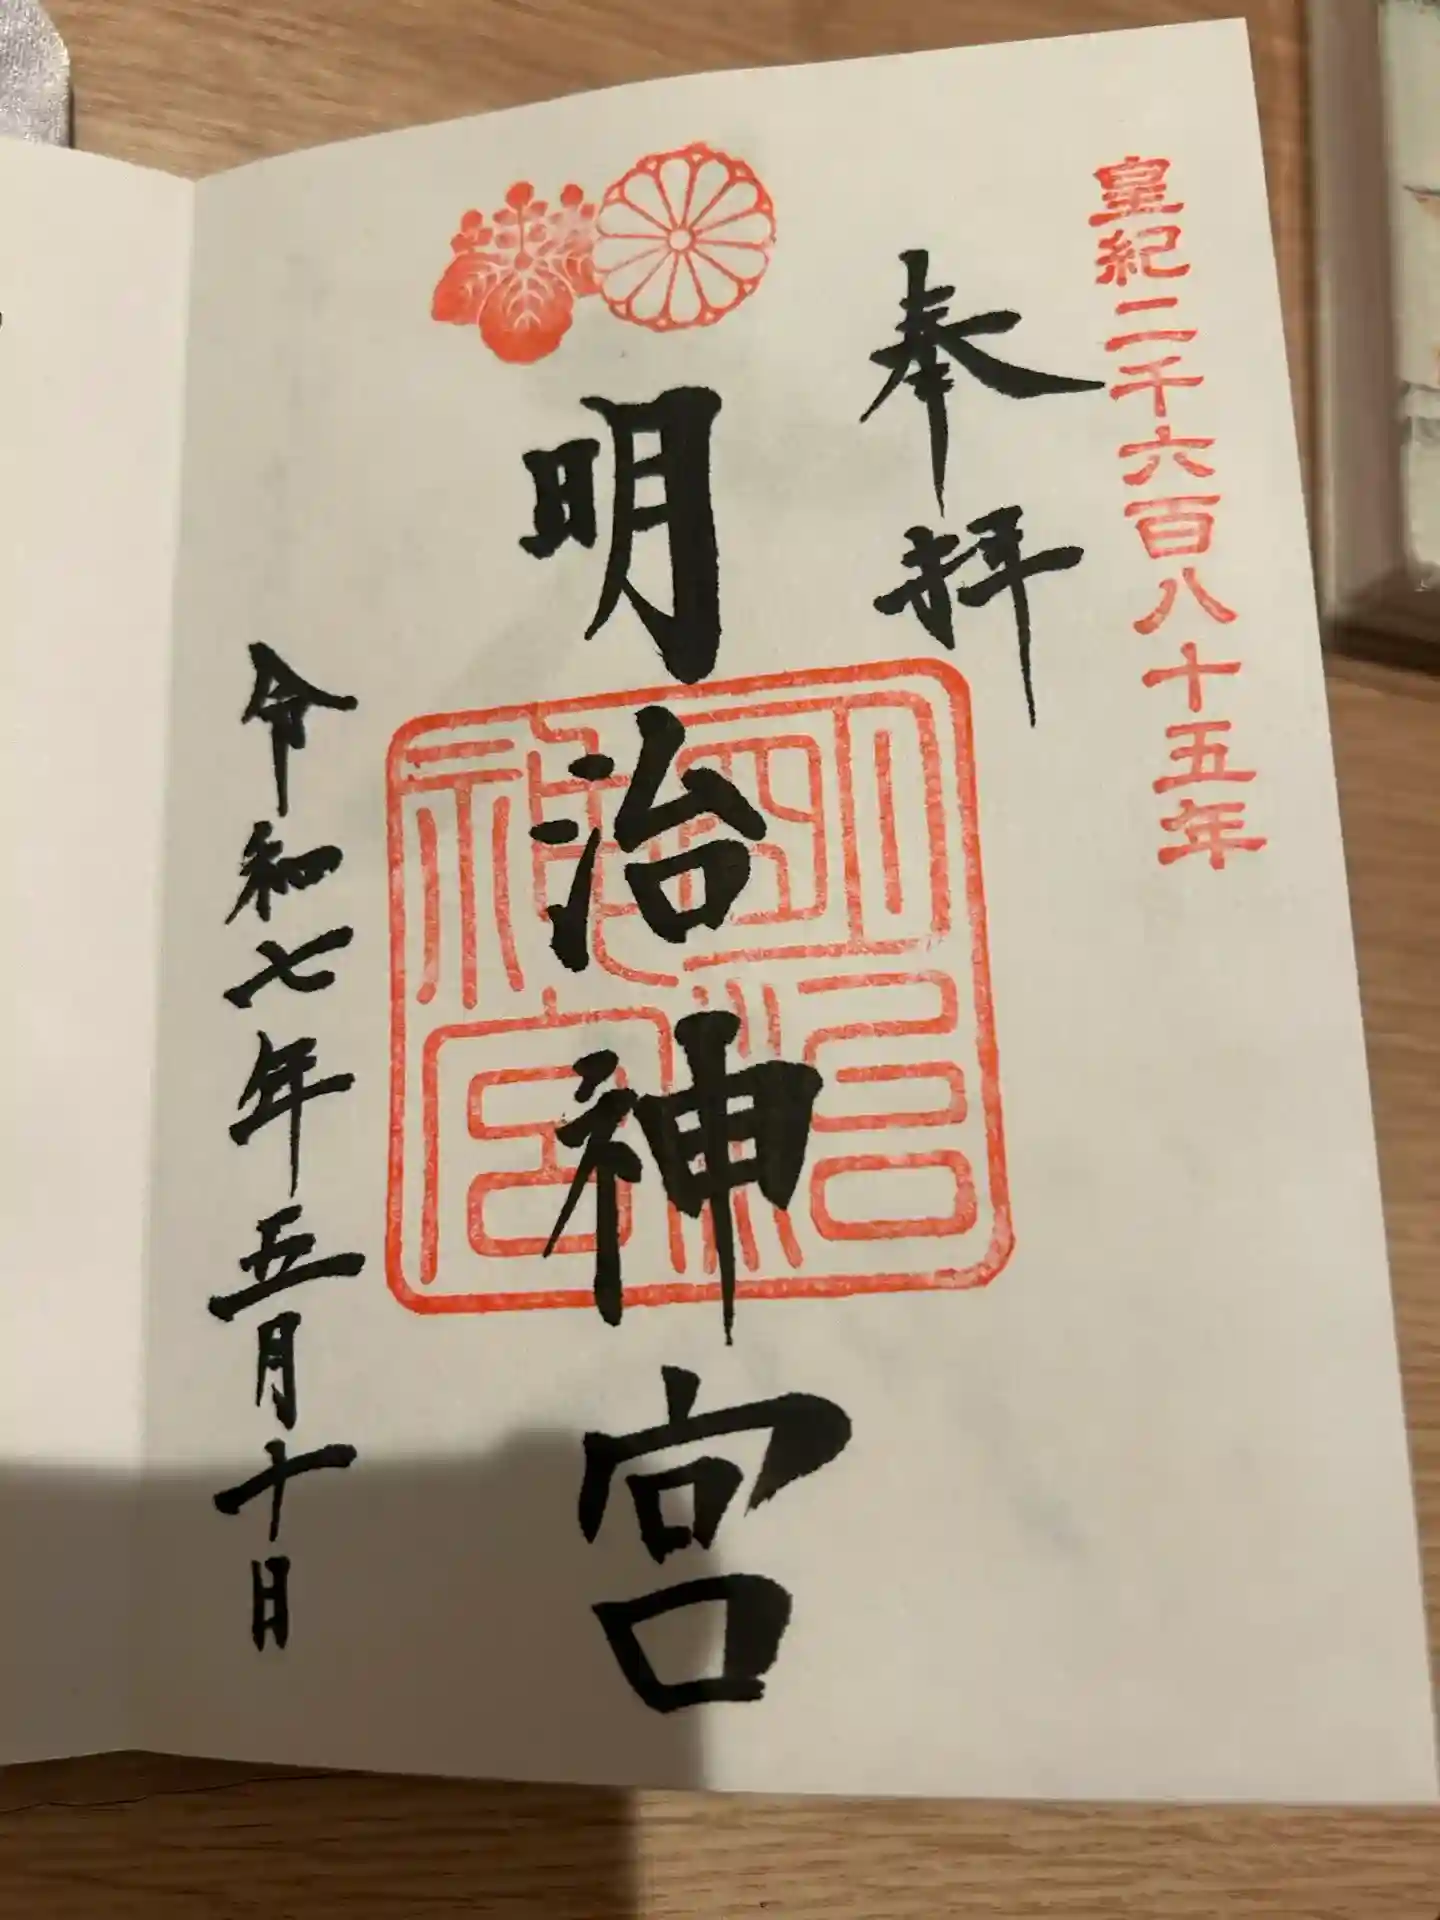 皇紀二千六百八十五年
奉拝
明治神宮
明治神宮
令和七年五月十日